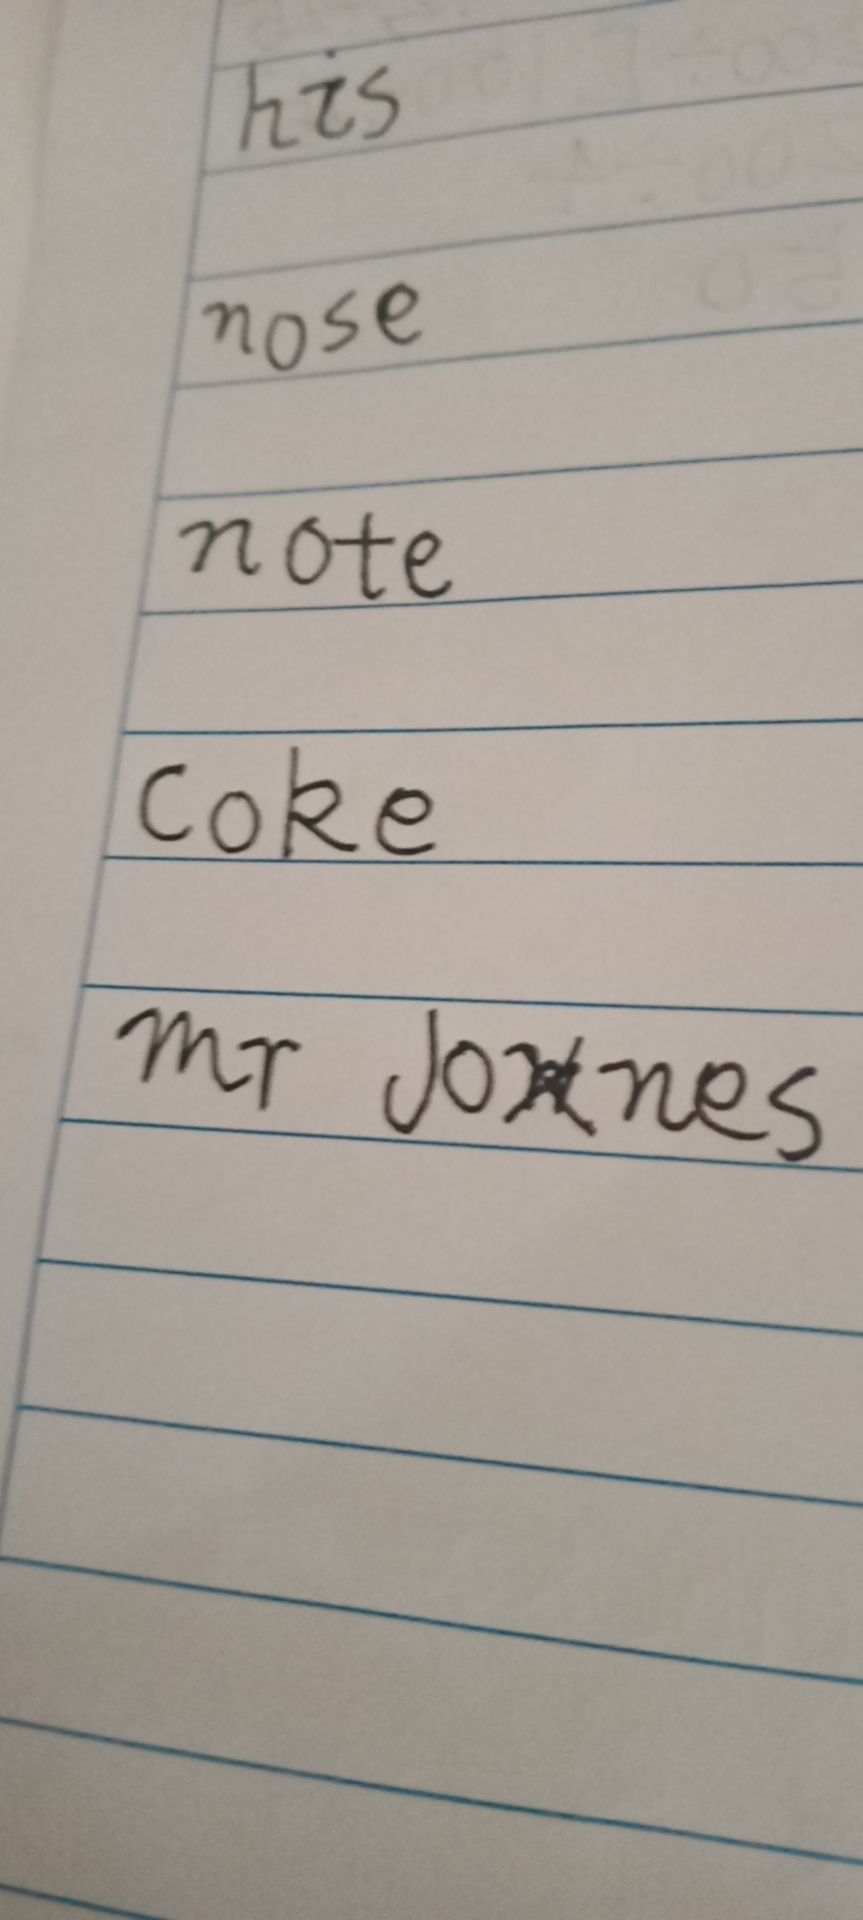 his
nose
note
Coke
Mr Jones